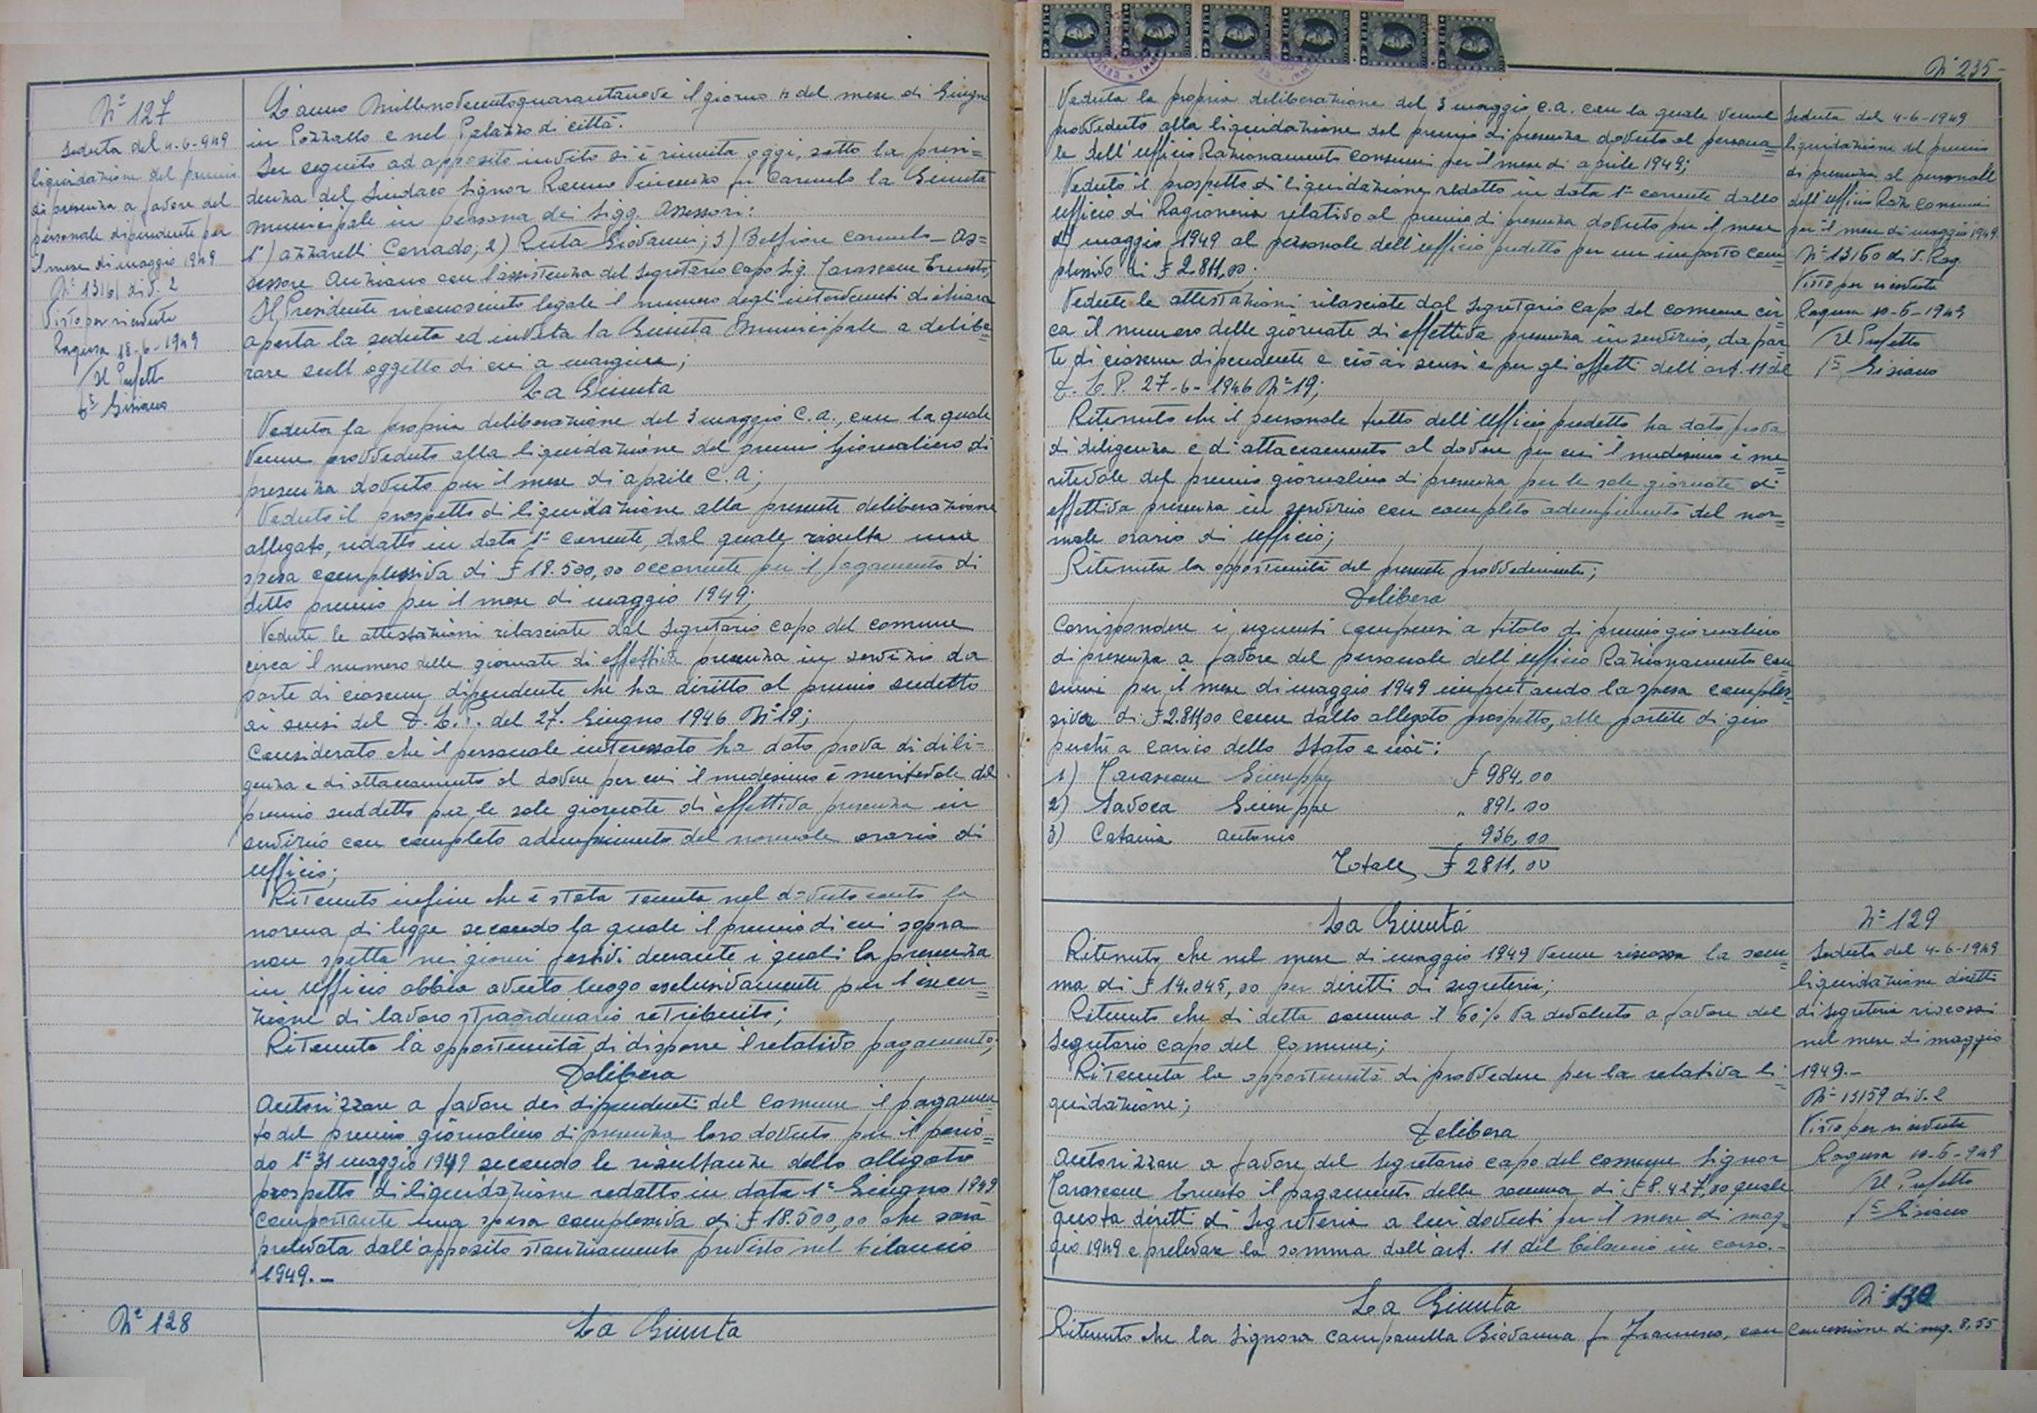 Nº 127
Seduta del 4-6-949
liquidazione del premio
di presenza a favore del
personale dipendente per
il mese di maggio 1949
Nº 13161 di V. 2
Visto per ricevuta
Ragusa 18-6-1949
Il Prefetto
Nº 128
L'anno Millenovecentoquarantanove il giorno 4 del mese di Giugno
in Pozzallo e nel Palazzo di città.
In seguito ad apposito invito si è riunita oggi, sotto la presi=
denza del Sindaco Signor Vincenzo fu Carmelo la Giunta
Municipale in persona dei Sigg. Assessori:
1) Azzarelli Corrado; 2) Ruta Giovanni; 3) Belfiore Carmelo - As=
sessore Anziano con l'assistenza del Segretario Capo Sig. Tarascone Ernesto.
Il Presidente riconosciuto legale il numero degli intervenuti dichiara
aperta la seduta ed invita la Giunta Municipale a delibe=
rare sull'oggetto di cui a margine;
La Giunta
Veduta la propria deliberazione del 3 maggio c.a., con la quale
venne provveduto alla liquidazione del premio giornaliero di
presenza dovuto per il mese di aprile C.A;
Veduto il prospetto di liquidazione alla presente deliberazione
allegato, redatto in data 1º corrente, dal quale risulta una
spesa complessiva di £ 18.500,00 occorrente per il pagamento di
detto premio per il mese di maggio 1949;
Vedute le attestazioni rilasciate dal Segretario capo del comune
circa il numero delle giornate di effettiva presenza in servizio da
parte di ciascun dipendente che ha diritto al premio suddetto
ai sensi del D. L. P. del 27. Giugno 1946 Nº 19;
Considerato che il personale interessato ha dato prova di dili=
genza e di attaccamento al dovere per cui il medesimo è meritevole del
premio suddetto per le sole giornate di effettiva presenza in
servizio con completo adempimento del normale orario di
ufficio;
Ritenuto infine che è stata tenuta nel dovuto conto la
norma di legge secondo la quale il premio di cui sopra
non spetta nei giorni festivi durante i quali la presenza
in ufficio abbia avuto luogo esclusivamente per l'esecu=
zione di lavoro straordinario retribuito;
Ritenuta la opportunità di disporre il relativo pagamento;
Delibera
Autorizzare a favore dei dipendenti del Comune il pagamen=
to del premio giornaliero di presenza loro dovuto per il perio=
do 1º 31 maggio 1949 secondo le risultanze dello allegato
prospetto di liquidazione redatto in data 1º Giugno 1949
comportante una spesa complessiva di £ 18.500,00 che sarà
prelevata dall'apposito stanziamento previsto nel bilancio
1949.-
La Giunta
Nº 235-
Veduta la propria deliberazione del 3 maggio c.a. con la quale venne
provveduto alla liquidazione del premio di presenza dovuto al persona=
le dell'ufficio Razionamento Consumi per il mese di aprile 1949;
Veduto il prospetto di liquidazione redatto in data 1º corrente dallo
ufficio di Ragioneria relativo al premio di presenza dovuto per il mese
di maggio 1949 al personale dell'ufficio predetto per un importo com=
plessivo di £ 2.811,00.
Vedute le attestazioni rilasciate dal Segretario Capo del comune cir=
ca il numero delle giornate di effettiva presenza in servizio, da par=
te di ciascun dipendente e ciò ai sensi e per gli effetti dell'art. 11 del
D. L. P. 27-6-1946 Nº 19;
Ritenuto che il personale tutto dell'Ufficio predetto ha dato prova
di diligenza e di attaccamento al dovere per cui il medesimo è me=
ritevole del premio giornaliero di presenza per le sole giornate di
effettiva presenza in servizio con completo adempimento del nor=
male orario di ufficio;
Ritenuta la opportunità del presente provvedimento;
Delibera
Corrispondere i seguenti compensi a titolo di premio giornaliero
di presenza a favore del personale dell'ufficio Razionamento Con=
sumi per il mese di maggio 1949 imputando la spesa comples=
siva di £ 2.811,00 come dallo allegato prospetto, alle partite di giro
perché a carico dello Stato e cioè:
1) Tarascone Giuseppe £ 984,00
2) Savoca Giuseppe " 891,00
3) Catania Antonio 936,00
Totale £ 2811,00
La Giunta
Ritenuto che nel mese di maggio 1949 venne riscossa la som=
ma di £ 14.045,00 per diritti di segreteria;
Ritenuto che di detta somma il 60% va devoluto a favore del
Segretario capo del Comune;
Ritenuta la opportunità di provvedere per la relativa li=
quidazione;
Delibera
Autorizzare a favore del Segretario capo del comune Signor
Tarascone Ernesto il pagamento della somma di £ 8.427,00 quale
quota diritti di Segreteria a lui dovuti per il mese di mag=
gio 1949 e prelevare la somma dall'art. 11 del bilancio in corso.-
La Giunta
Ritenuto che la Signora Campanella Giovanna fu Francesco, con
Seduta del 4-6-1949
liquidazione del premio
di presenza al personale
dell'ufficio Raz. Consumi
per il mese di maggio 1949.
Nº 13160 di V. Rag.
Visto per ricevuta
Ragusa 10-6-1949
Il Prefetto
Nº 129
Seduta del 4-6-1949
liquidazione diritti
di segreteria riscossi
nel mese di maggio
1949.-
Nº 13159 di V. 2
Visto per ricevuta
Ragusa 10-6-949
Il Prefetto
Nº 130
Concessione di mq. 8,55